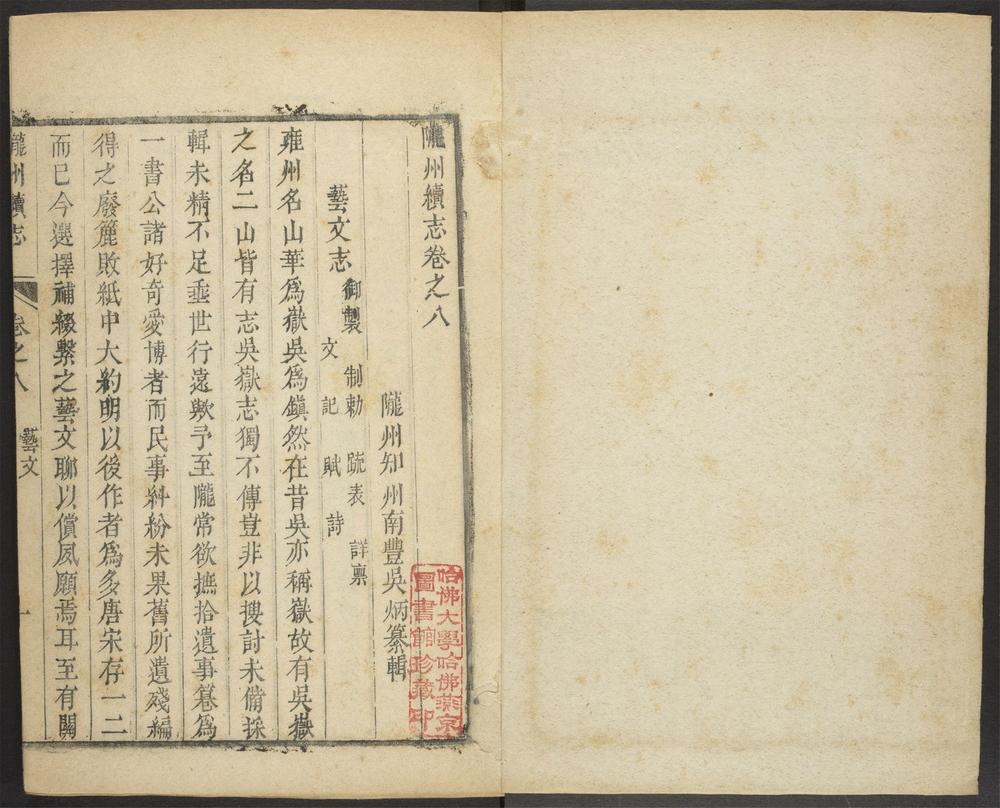 隴州續志卷之八
隴州知州南豐吳炳纂輯
藝文志 御製 制勅 䟽表 詳禀
文 記 賦 詩
雍州名山華爲嶽吳爲鎭然在昔吳亦稱嶽故有吳嶽
之名二山皆有志吳嶽志獨不傳豈非以搜討未備採
輯未精不足垂世行遠歟予至隴常欲摭拾遺事纂爲
一書公諸好奇愛博者而民事紏紛未果舊所遺殘編
得之廢簏敗紙中大約明以後作者爲多唐宋存一二
而已今選擇補綴繫之藝文聊以償夙願焉耳至有關
隴州續志
卷之八
藝文
一
哈佛大學哈佛燕京
圖書館珍藏印